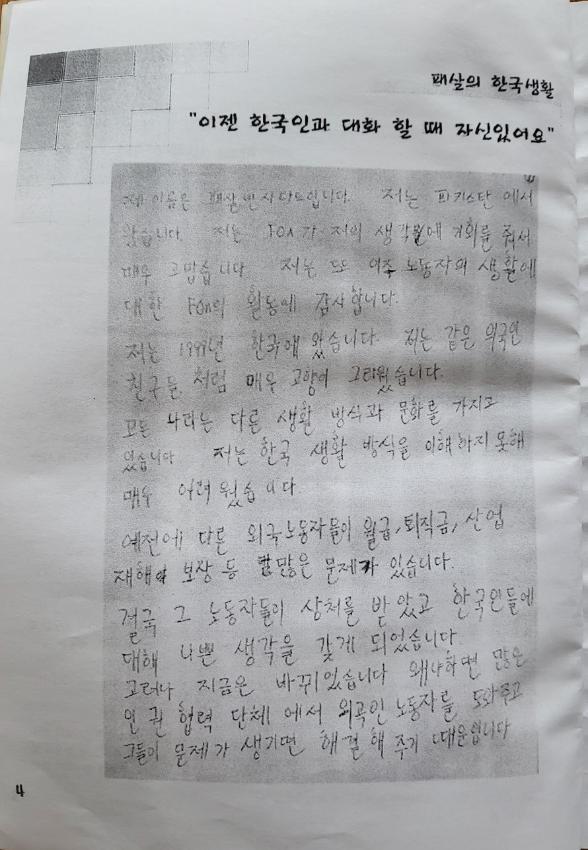 패살의 한국생활
"이젠 한국인과 대화 할 때 자신있어요"
제 이름은 패살빈자다드입니다. 저는 파키스탄 에서
왔습니다. 저는 FOA가 저의 생각에 기회를 줘서
매우 고맙습니다 저는 또 이주 노동자의 생활에
대한 FOA의 활동에 감사합니다.
저는 1999년 한국에 왔습니다. 저는 같은 외국인
친구들 처럼 매우 고향이 그리웠습니다.
모든 나라는 다른 생활 방식과 문화를 가지고
있습니다 저는 한국 생활 방식을 이해하지 못해
매우 어려웠습니다.
예전에 다른 외국노동자들이 월급, 퇴직금, 산업
재해 보장 등 많은 문제가 있습니다.
결국 그 노동자들이 상처를 받았고 한국인들에
대해 나쁜 생각을 갖게 되었습니다.
고러나 지금은 바뀌있습니다 왜냐하면 많은
인권 협력 단체 에서 외국인 노동자를 도와주고
그들이 문제가 생기면 해결해 주기 때문입니다
4